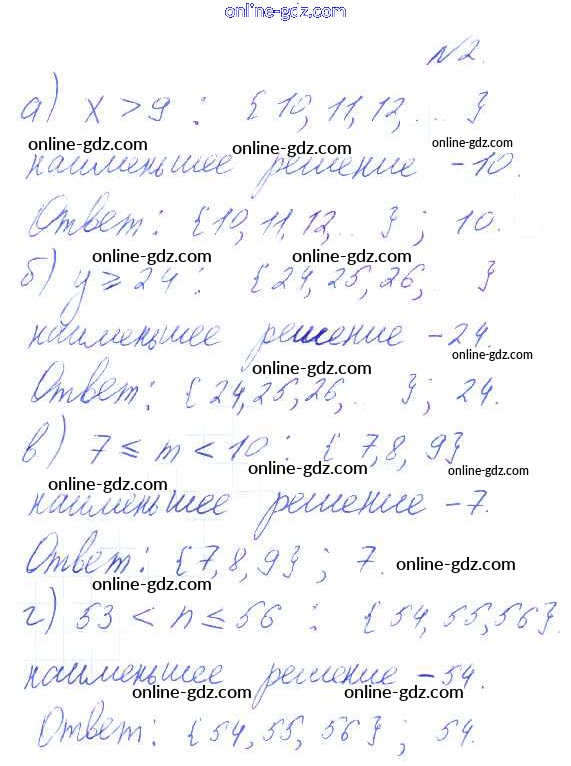 online-gdz.com
№2.
а) x > 9 : {10, 11, 12, ... }
online-gdz.com online-gdz.com online-gdz.com
наименьшее решение - 10.
Ответ: {10, 11, 12, .. } ; 10.
online-gdz.com online-gdz.com
б) y ⩾ 24 : {24, 25, 26, .. }
наименьшее решение - 24.
online-gdz.com
online-gdz.com
Ответ: {24, 25, 26, .. } ; 24.
в) 7 ≤ m < 10 : {7, 8, 9}
online-gdz.com online-gdz.com online-gdz.com
наименьшее решение - 7.
Ответ: {7, 8, 9} ; 7. online-gdz.com
online-gdz.com online-gdz.com
г) 53 < n ≤ 56 : {54, 55, 56}.
наименьшее решение - 54.
online-gdz.com online-gdz.com online-gdz.com
Ответ: {54, 55, 56} ; 54.